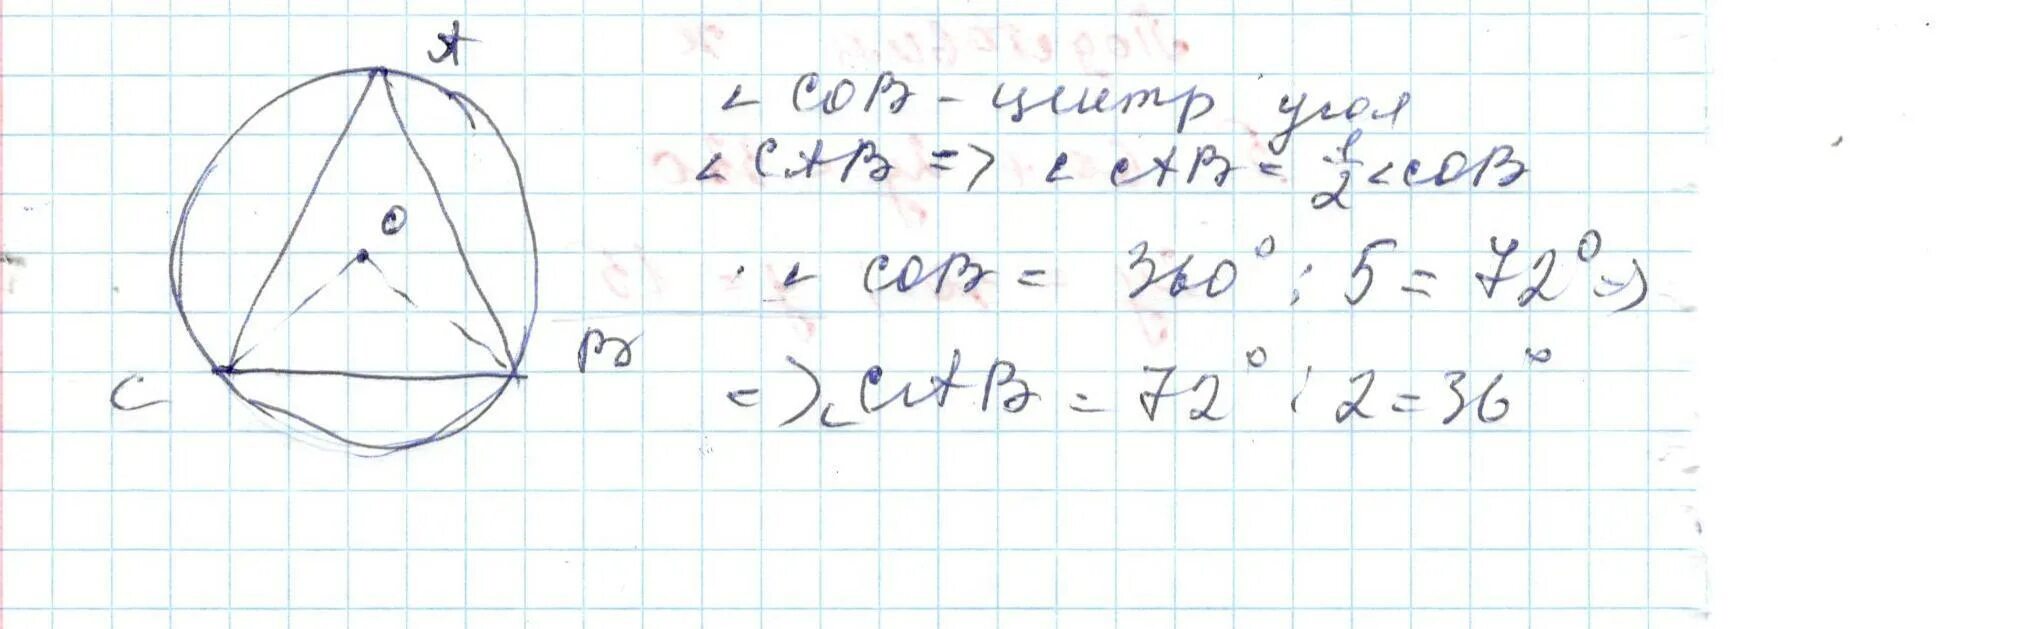 A
O
C
B
< COB - центр угол
< CAB => < CAB = 1/2 < COB
< COB = 360° : 5 = 72° =>
=> < CAB = 72° : 2 = 36°